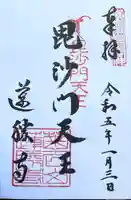 奉拝
令和五年一月三日
毘沙門天王
蓮勝寺